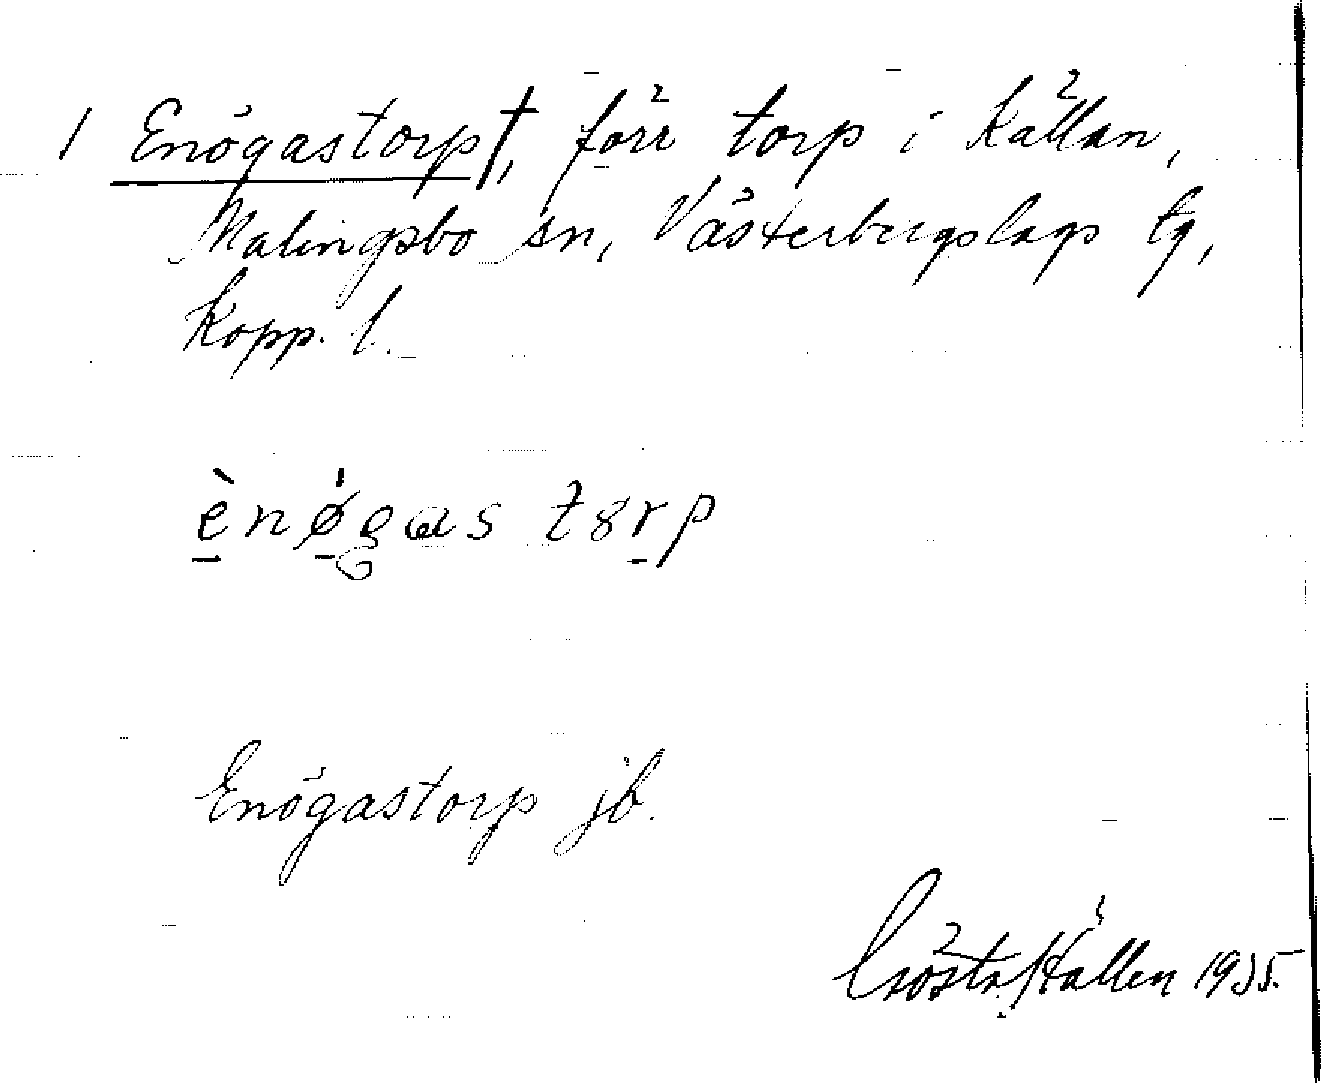 1 Enögastorp†, förr torp i Källan,
Malingsbo sn, Västerbergslags tg,
Kopp. l.
ènø̀gas tɤrp
Enögastorp jb.
Gösta Hallen 1935.